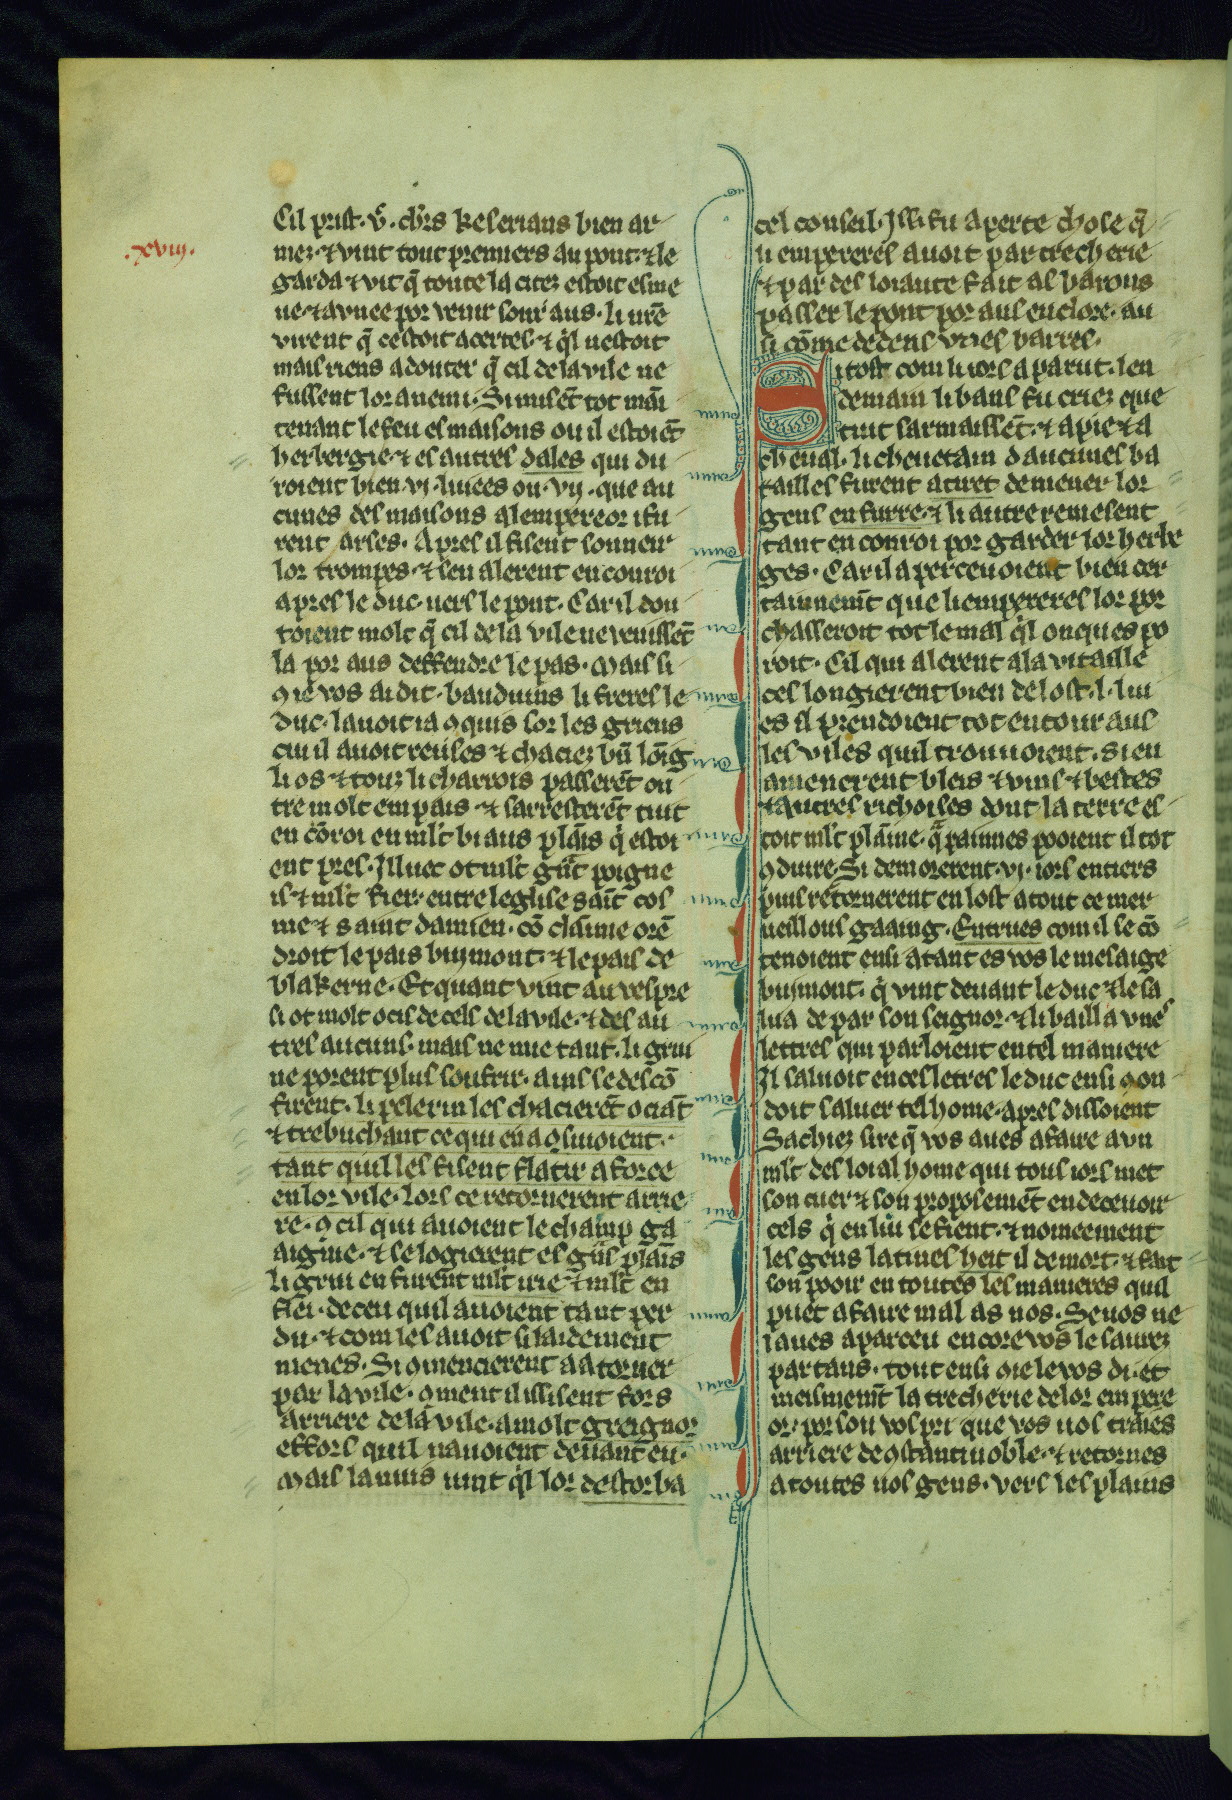 .xviij.
Cil prist .v. chrs keserians bien ar
mez ⁊ vint tout premiers au pont ⁊ le
garda ⁊ vit q̄ toute la citez estoit esme
ue ⁊ aunee por venir sour aus. li nr̄e
virent q̄ cestoit acertes ⁊ q̓l nestoit
mais riens a douter q̄ cil de la vile ne
fussent lor anemi. Si misēt tot māi
tenant le feu es maisons ou il estoiēt
herbergie ⁊ es autres dales qui du
roient bien .vj. liuees ou .vij. que au
cunes des maisons a lempereor i fu
rent arses. Apres il fisent sonneir
lor trompes ⁊ sen alerent en couroi
apres le duc uers le pont. Car il dou
toient molt q̄ cil de la vile ne venissēt
la por aus deffendre le pas. Mais si
ꝯ ie vos ai dit. bauduins li freres le
duc lauoit ia ꝯquis sor les grieus
cui il auoit reuses ⁊ chaciez bn̄ loīg
li os ⁊ touz li charrois passerēt ou
tre molt em pais ⁊ sarresterēt tuit
en cōroi en ml̓t biaus plaīs q̓ estoi
ent pres. Illuec ot ml̓t gn̄t poigne
is ⁊ ml̓t fier entre leglise saīt cos
me ⁊ saint damien. cō claime orē
droit le pais buymont ⁊ le pais de
blakerne. Et quant vint au vespre
si ot molt ocis de cels de la vile ⁊ des au
tres aucuns mais ne mie tant. li griu
ne porent plus soufrir. ains se descō
firent. li pelerin les chacierēt ociāt
⁊ trebuchant ce qui en aꝯsiuoient.
tant quil les fisent flatir a force
en lor vile. lors ce retornerent arrie
re. ꝯ cil qui auoient le champ ga
aignie ⁊ se logierent es gn̄s plaīs
li griu en furent ml̓t irie ⁊ ml̓t en
flei. de ceu quil auoient tant per
du ⁊ com les auoit si laidement
menes. Si ꝯmencierent a atorner
par la vile. ꝯment il ississent fors
arriere de la vile. a molt greignor
effors quil nauoient deuant eu.
Mais la nuis uint q̓l lor destorba
cel conseil. Illi fu aperte chose q̄
li empereres auoit par trecherie
⁊ par desloiaute fait as barons
passer le pont por aus enclore. au
si cōme dedens vnes barres.
Sitost com li iors aparut. len
demain li bans fu criez que
tuit sarmaissēt ⁊ a pie ⁊ a
cheual. li cheuetain daucunes ba
tailles furent atiret de mener lor
gens en furre ⁊ li autre remesent
tant en conroi por garder lor herbe
ges. Car il aperceuoient bien cer
tainnemt̄ que li empereres lor por
chasseroit tot le mal q̓l onques po
roit. Cil qui alerent a la vitaille
ces longierent bien de lost .l. liu
es il prendoient tot entour aus
les viles quil trouuoient. si en
amenerent bleis ⁊ vins ⁊ bestes
⁊ autres richoises dont la terre es
toit ml̓t plaīne. q̄ painnes pooient il tot
ꝯduire. Si demorerent .vj. iors entiers
puis retornerent en lost a tout ce mer
ueillous gaaing. Entrues com il se cō
tenoient ensi atant es vos le mesaige
buimont. q̓ vint deuant le duc ⁊ le sa
lua de par son seignor ⁊ li bailla vnes
lettres qui parloient en tel maniere
Il saluoit en ces letres le duc ensi ꝯ on
doit saluer tel home. apres dissoient
Sachiez sire q̄ vos aues a faire a vn
ml̓t desloial home qui tous iors met
son cuer ⁊ son proposemēt en deceuoir
cels q̓ en lui se fient. ⁊ noīceement
les gens latines heit il de mort. ⁊ fait
son pooir en toutes les manieres quil
puet a faire mal as nos. Se uos ne
laues aparceu encore vos le saurez
par tans. tout ensi ꝯ ie le vos di. et
meismemt̄ la trecherie de lor empere
or. por sou vos pri que vos uos traies
arriere de ꝯstantinoble ⁊ retornes
a toutes uos gens. vers les plains